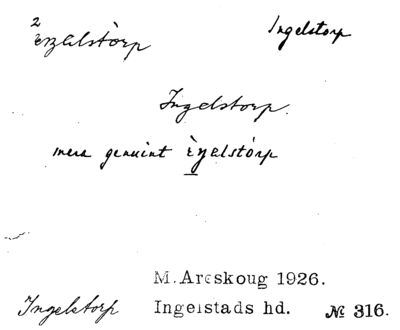 2
èŋalstòrp Ingelstorp
Ingelstorp.
mera genuint èŋalstórp
M. Areskoug 1926.
Ingelstorp Ingelstads hd. № 316.